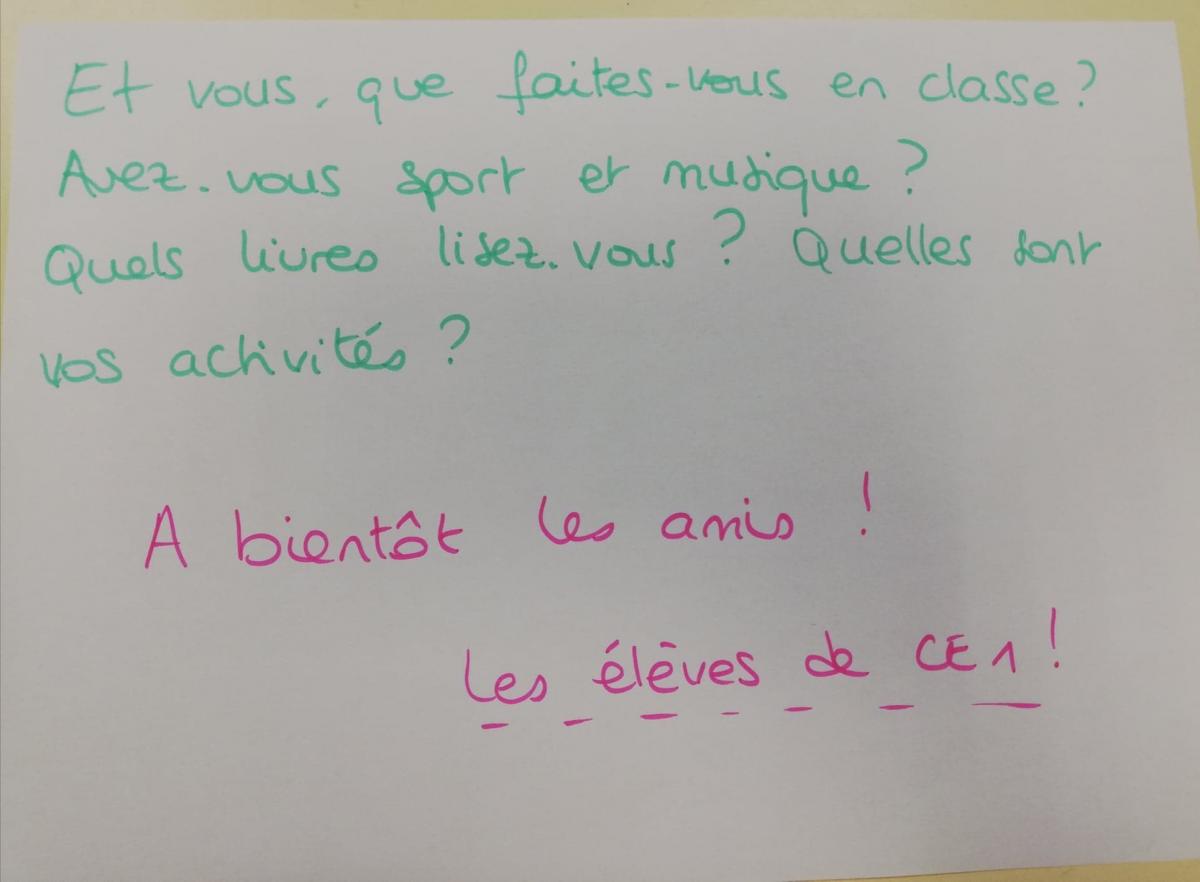 Et vous, que faites-vous en classe?
Avez-vous sport et musique ?
Quels livres lisez-vous ? Quelles sont
vos activités ?
A bientôt les amis !
Les élèves de CE1 !